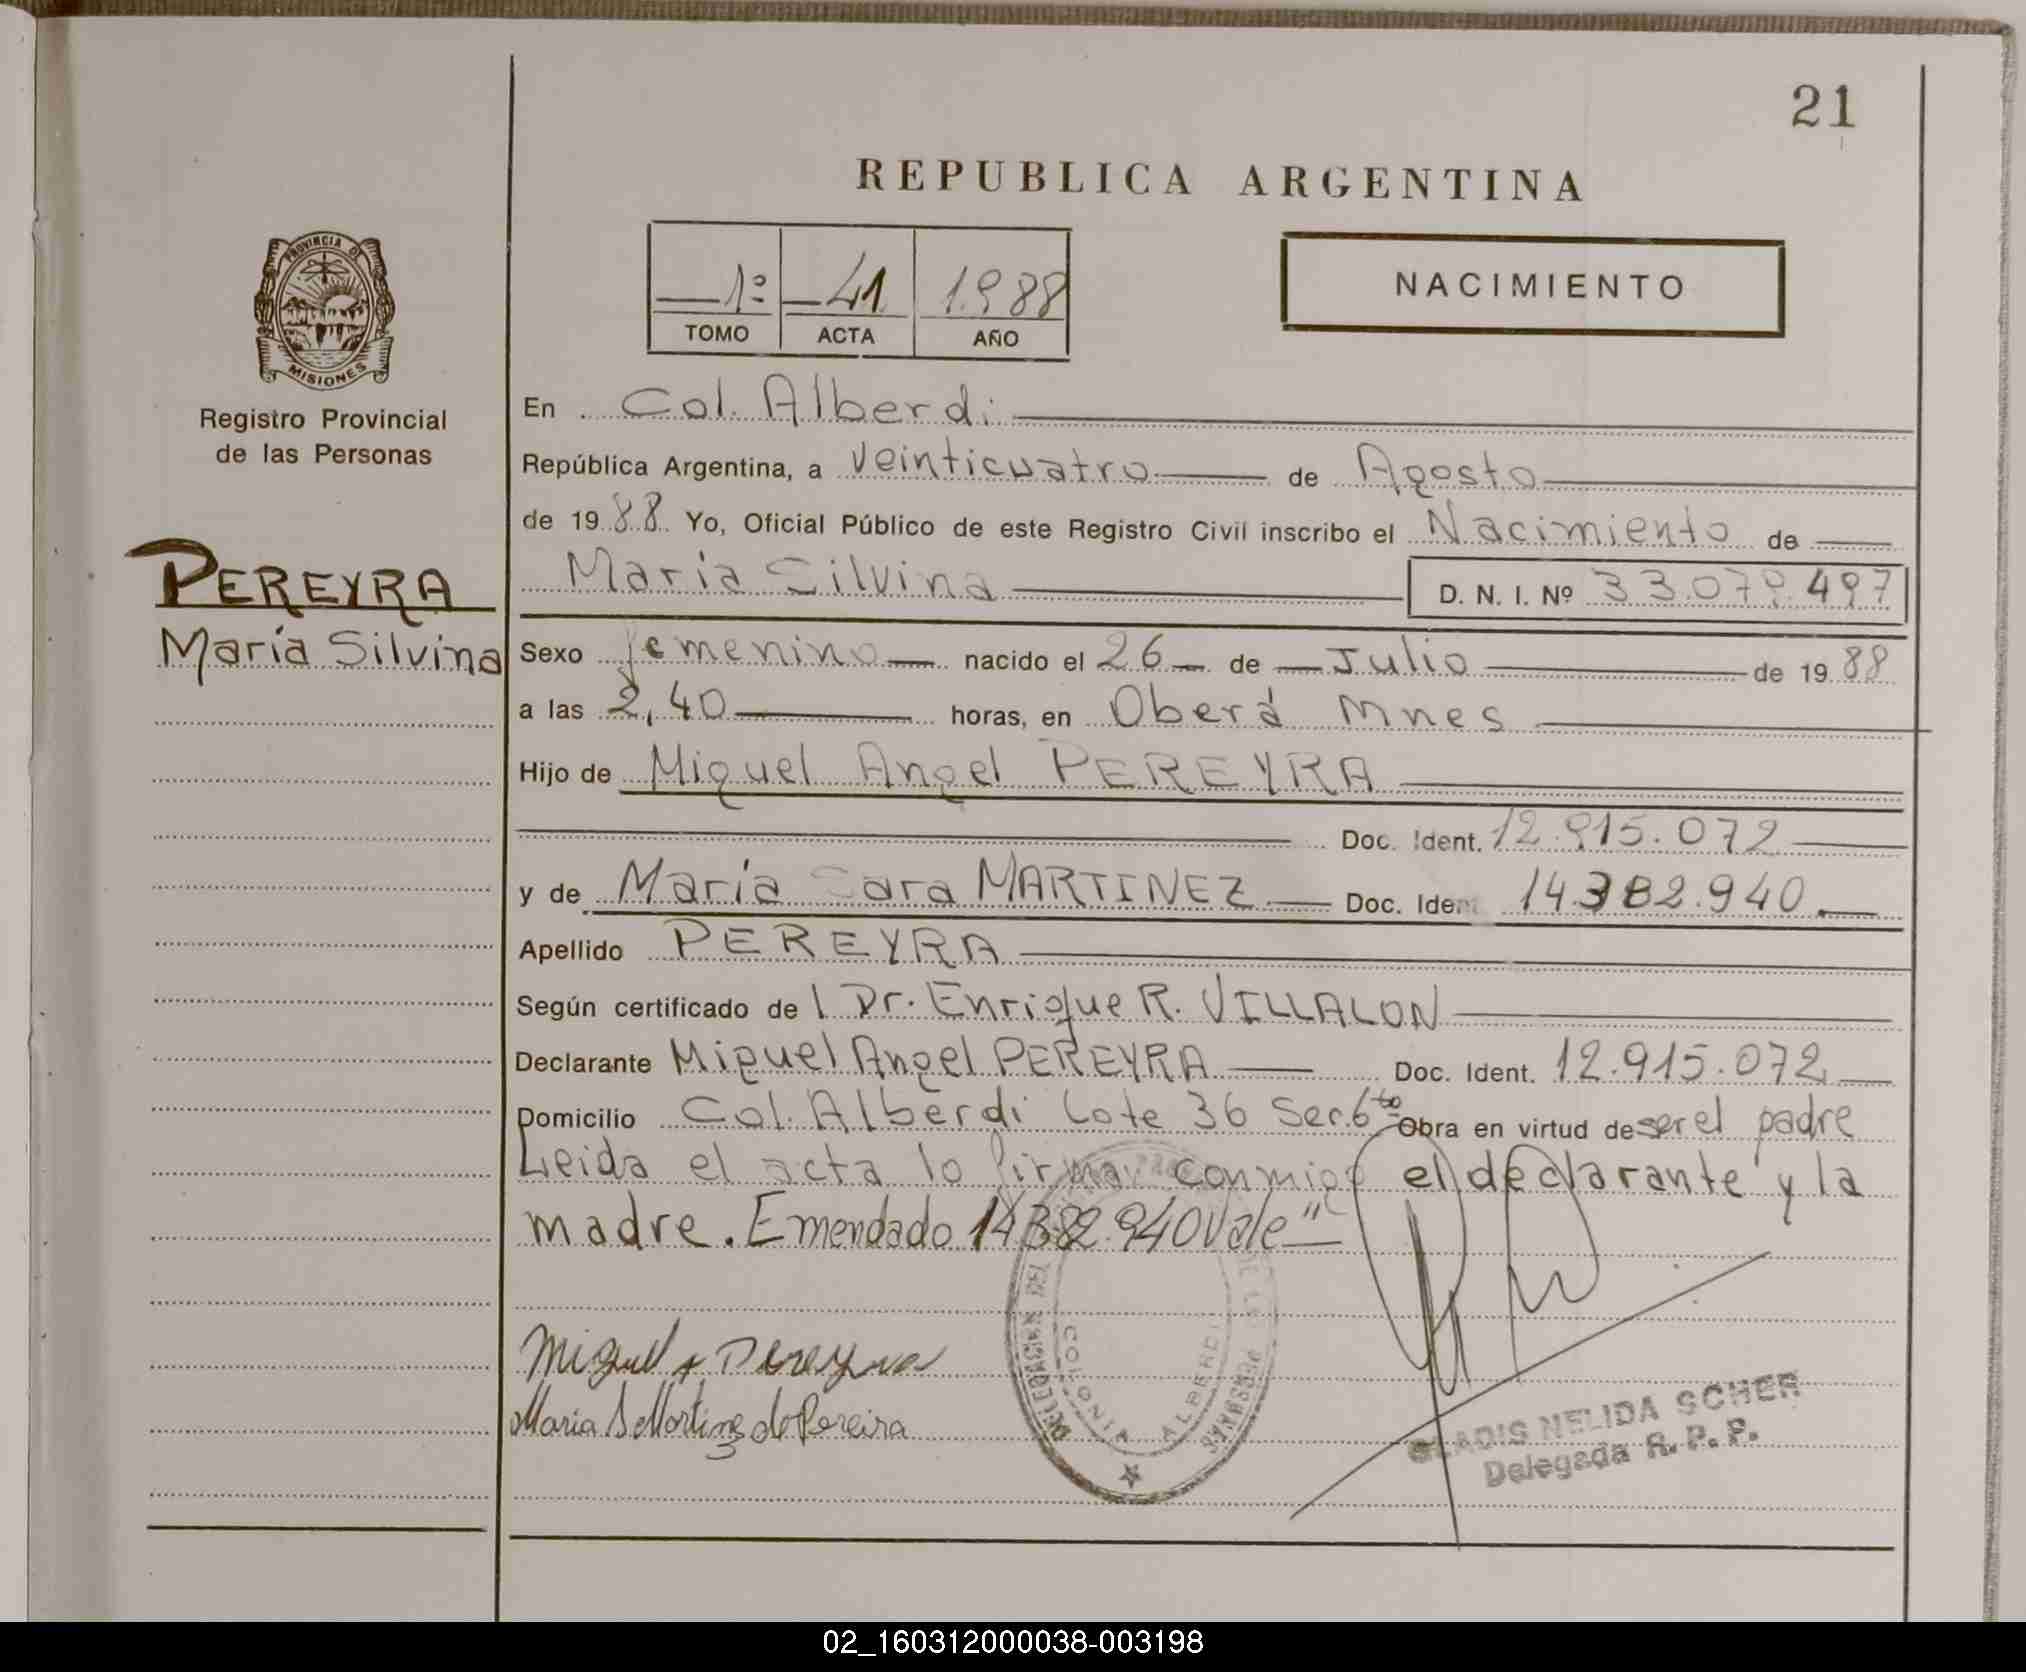 21
REPUBLICA ARGENTINA
1º 41 1988
TOMO ACTA AÑO
NACIMIENTO
PROVINCIA DE
MISIONES
Registro Provincial
de las Personas
PEREYRA
María Silvina
En Col. Alberdi
República Argentina, a veinticuatro de Agosto
de 1988 Yo, Oficial Público de este Registro Civil inscribo el Nacimiento de
María Silvina D. N. I. Nº 33.079.497
Sexo femenino nacido el 26 de Julio de 1988
a las 2,40 horas, en Oberá Mnes
Hijo de Miguel Angel PEREYRA
Doc. Ident. 12.915.072
y de María Sara MARTINEZ Doc. Ident. 14.382.940.
Apellido PEREYRA
Según certificado de l Dr. Enrique R. VILLALON
Declarante Miguel Angel PEREYRA Doc. Ident. 12.915.072
Domicilio Col. Alberdi Lote 36 Sec. 6ta Obra en virtud de ser el padre
Leida el acta lo firman conmigo el declarante y la
madre. Emendado 14.382.940 Vale"
Miguel A Pereyra
Maria S Martinez de Pereira
COLONIA ALBERDI
DE LAS PERSONAS
GLADIS NELIDA SCHER
Delegada R. P. P.
02_160312000038-003198